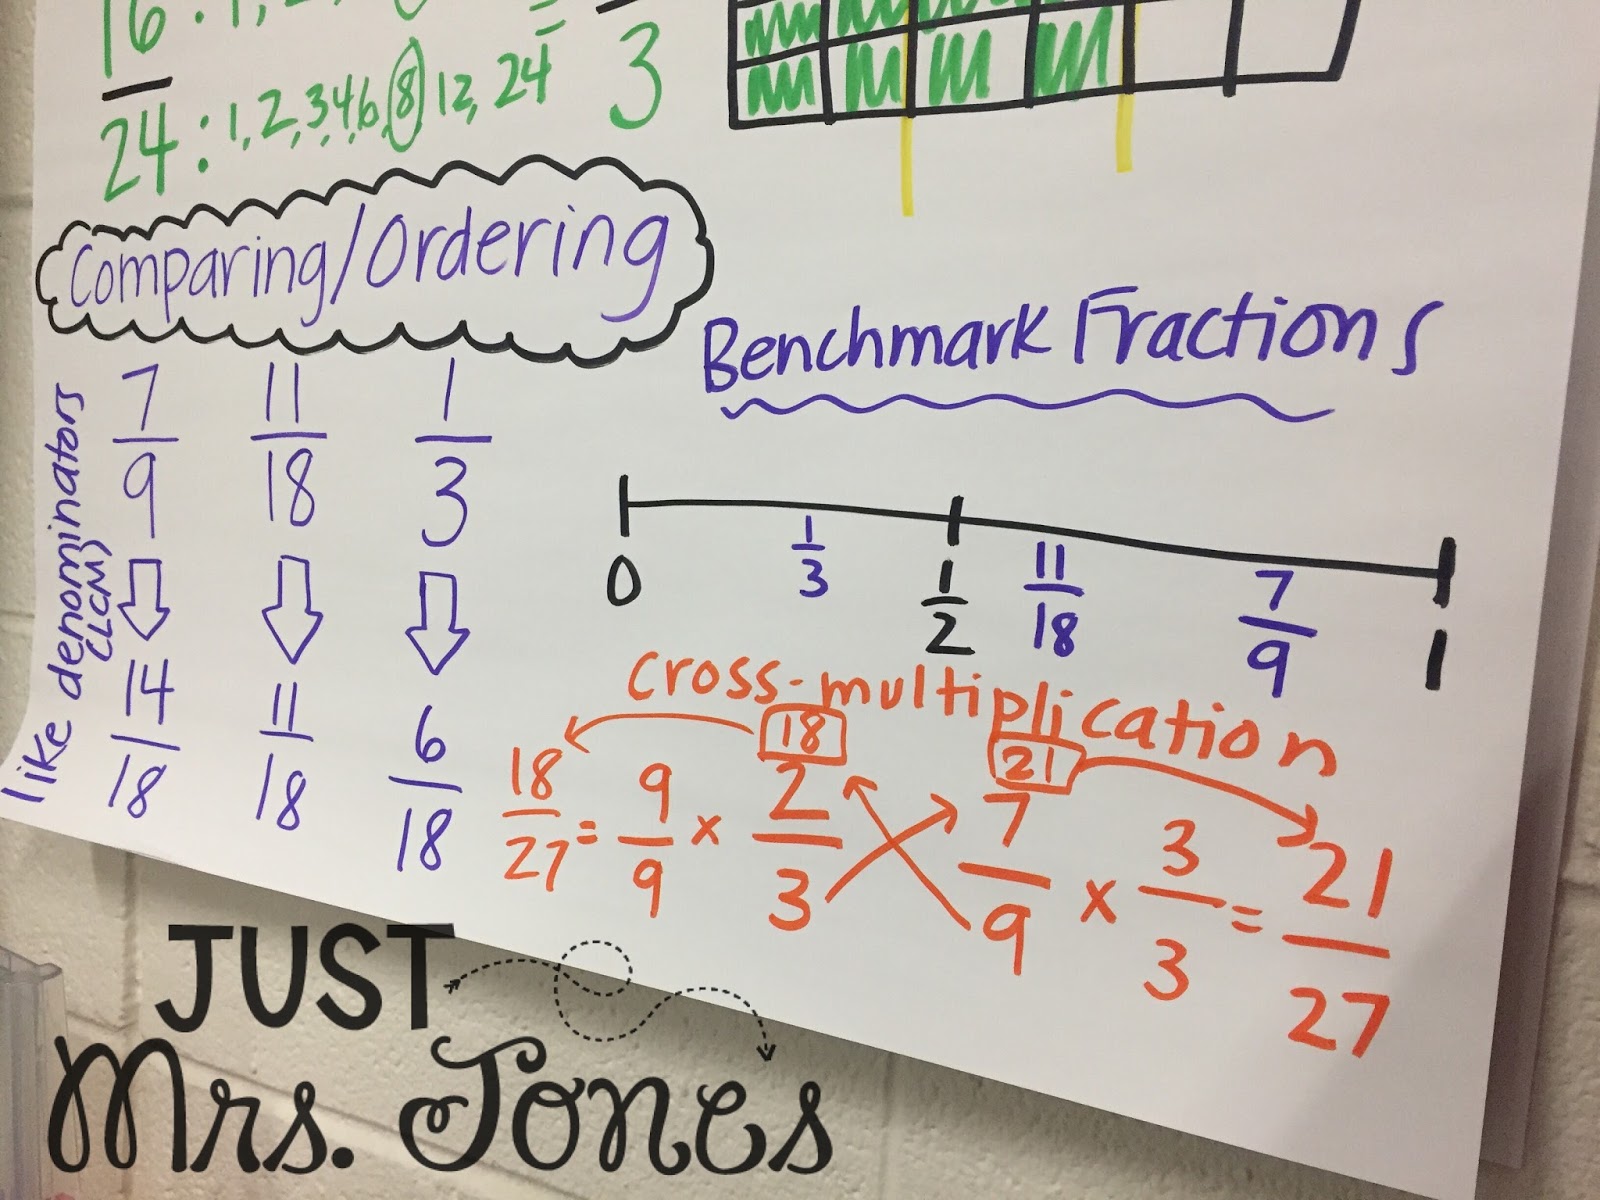 16 : 1, 2,
24 : 1, 2, 3, 4, 6, 8, 12, 24
=
3
Comparing/Ordering
like denominators
(LCM)
7/9 11/18 1/3
14/18 11/18 6/18
Benchmark Fractions
0 1/3 1/2 11/18 7/9 1
cross-multiplication
18 21
18/27 = 9/9 x 2/3 7/9 x 3/3 = 21/27
JUST
Mrs. Jones